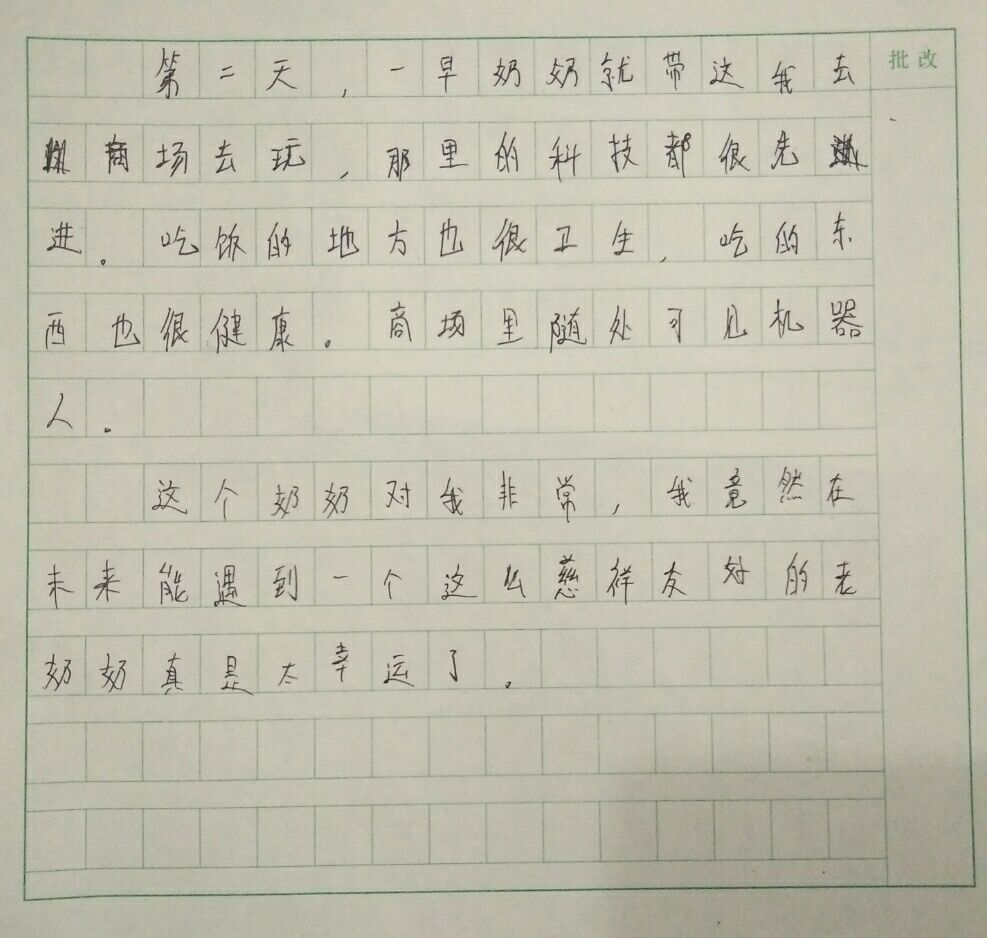 批改
第二天，一早奶奶就带这我去
商场去玩，那里的科技都很先
进。吃饭的地方也很卫生，吃的东
西也很健康。商场里随处可见机器
人。
这个奶奶对我非常，我竟然在
未来能遇到一个这么慈祥友好的老
奶奶真是太幸运了。